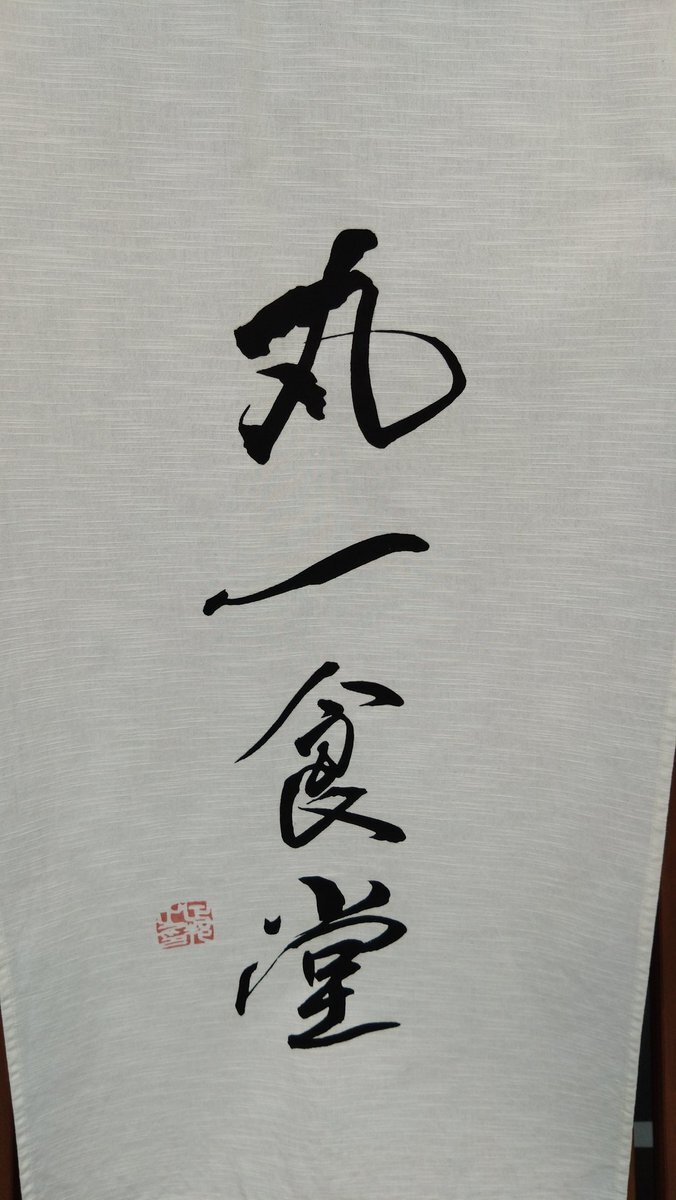 丸一食堂